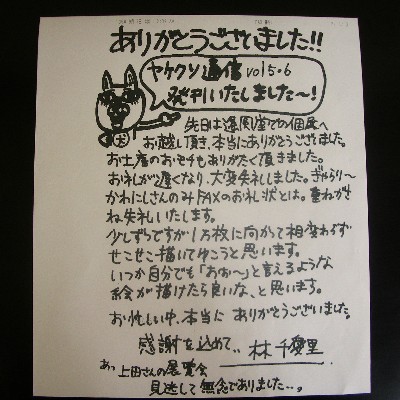 ありがとうございました!!
ヤケクソ通信vol5.6
発刊いたしました〜!
先日は遠周座での個展へ
お越し頂き、本当にありがとうございました。
お土産のおモチもありがたく頂きました。
お礼が遅くなり、大変失礼しました。ぎゃらり〜
かわにしさんのみFAXのお礼状とは。重ねがさ
ね失礼いたします。
少しずつですが1万枚に向かって相変わらず
せこせこ描いてゆこうと思います。
いつか自分でも「おぉ〜」と言えるような
絵が描けたら良いな、と思います。
お忙しい中、本当に ありがとうございました。
感謝を込めて、、 林 千愛里
あっ 上田さんの展覧会
見逃して無念でありました…。